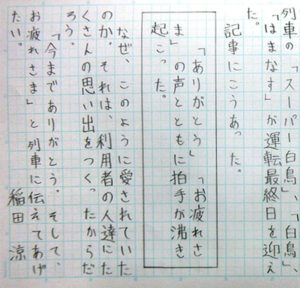 列車の「スーパー白鳥」、「白鳥」、
「はまなす」が運転最終日を迎え
た。
記事にこうあった。
「ありがとう」「お疲れさ
ま」の声とともに拍手が沸き
起こった。
なぜ、このように愛されていた
のか。それは、利用者の人達にた
くさんの思い出をつくったからだ
ろう。
「今までありがとう。そして、
お疲れさま」と列車に伝えてあげ
たい。
稲田 涼